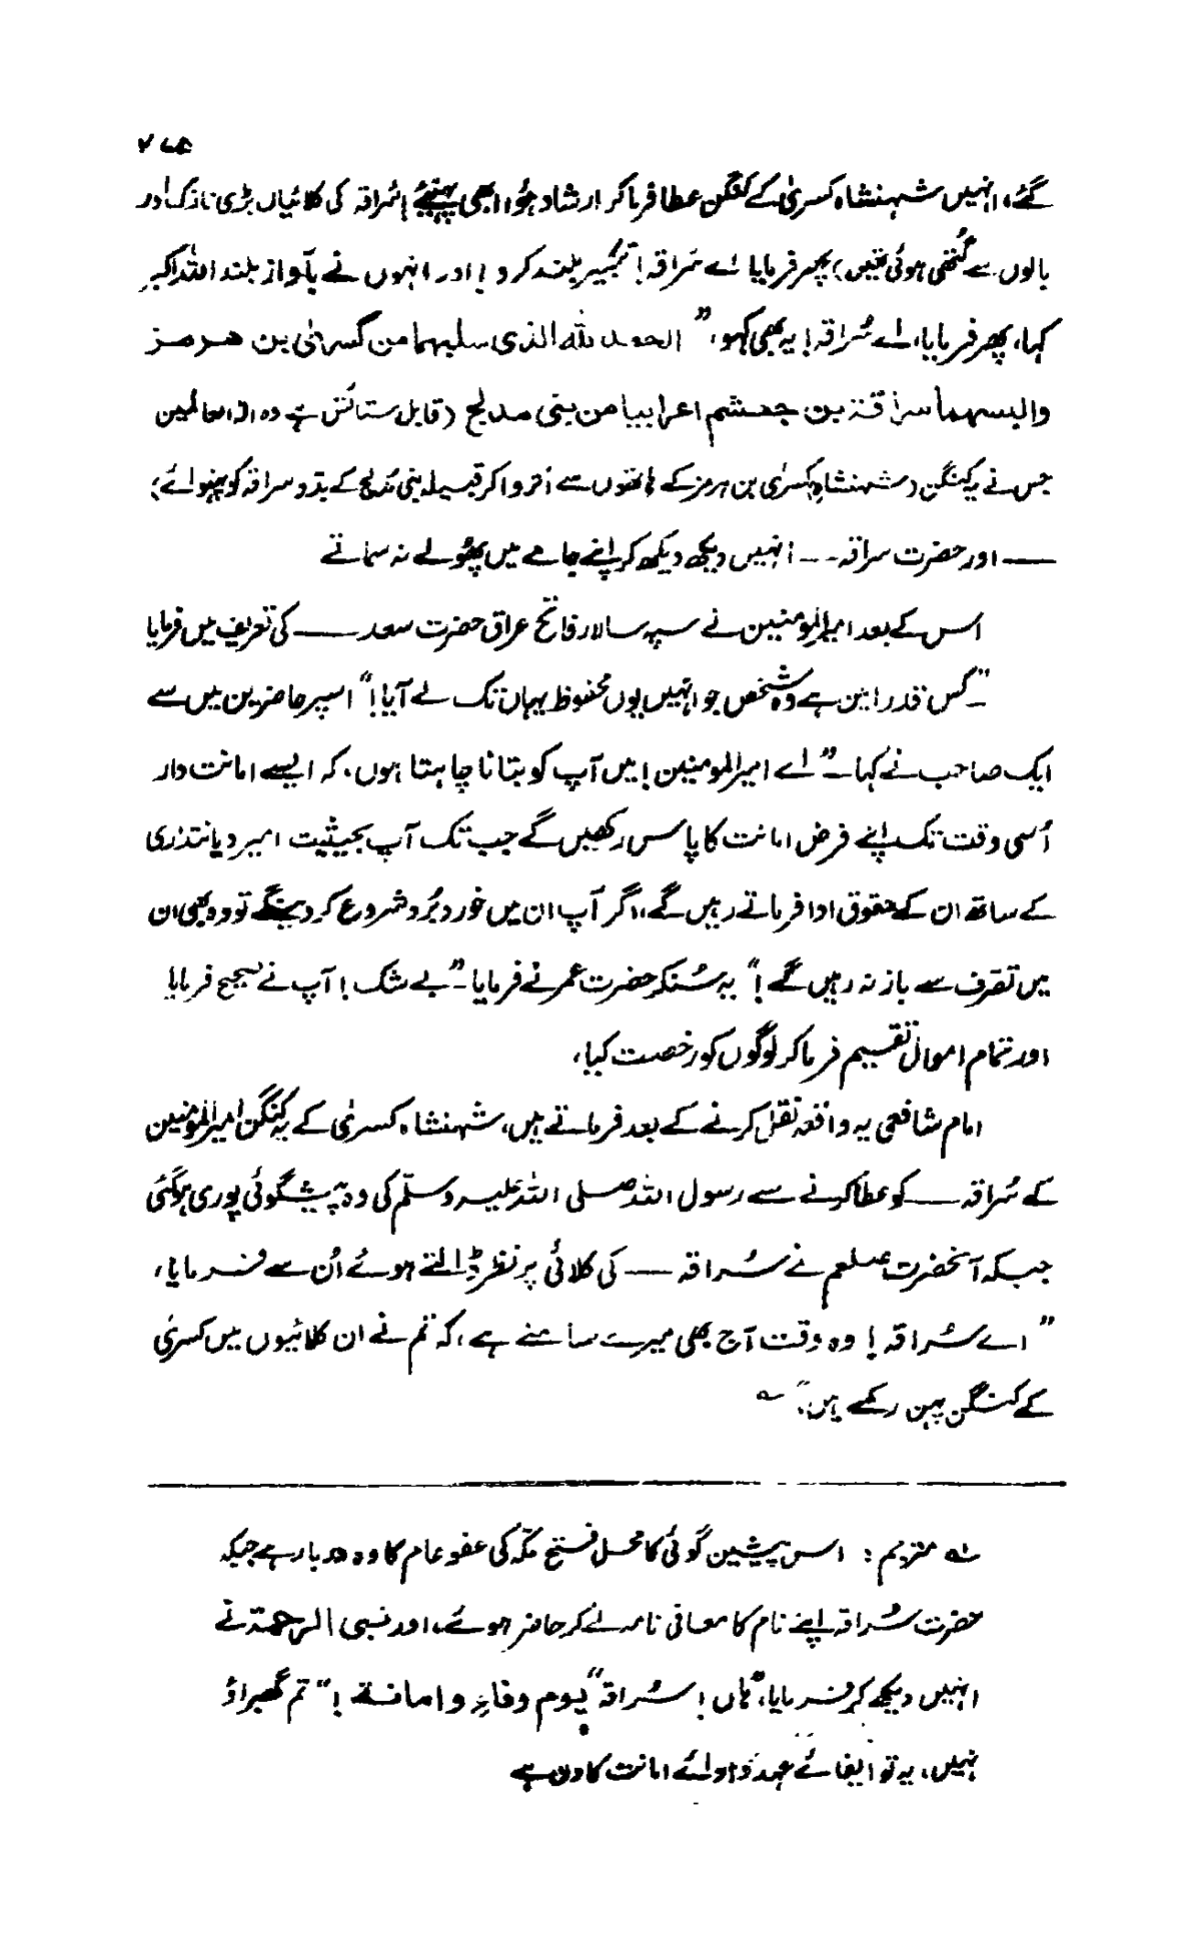 ۲۷۵
گئے، انہیں شہنشاہ کسریٰ کے کنگن عطا فرما کر ارشاد ہوُا ابھی پہنیئے (سُراقہ کی کلائیاں بڑی نازک اور
بالوں سے گتھی ہوئی تھیں) پھر فرمایا اے سُراقہ! تکبیر بلند کرو! اور انہوں نے بآواز بلند اللہ اکبر
کہا، پھر فرمایا، اے سُراقہ! یہ بھی کہو، ”الحمد للہ الذی سلبہما من کسریٰ بن ھرمز
والبسہما سراقۃ بن جعشم اعرابیا من بنی مدلج (قابل ستائش ہے وہ الٰہ العالمین
جس نے یہ کنگن، شہنشاہِ کسریٰ بن ہرمز کے ہاتھوں سے اُتروا کر قبیلہ بنی مُدلج کے بدّو سراقہ کو پہنوائے)
—— اور حضرت سراقہ -- انہیں دیکھ دیکھ کر اپنے جامے میں پھُولے نہ سماتے
اس کے بعد امیرالمومنین نے سپہ سالار فاتح عراق حضرت سعد —— کی تعریف میں فرمایا
”۔ کس قدر امین ہے وہ شخص جو انہیں یوں محفوظ یہاں تک لے آیا!“ اسپر حاضرین میں سے
ایک صاحب نے کہا ۔ ”اے امیرالمومنین! میں آپ کو بتانا چاہتا ہوں، کہ ایسے امانت دار
اُسی وقت تک اپنے فرض امانت کا پاس رکھیں گے جب تک آپ بحیثیت امیر دیانتداری
کے ساتھ ان کے حقوق ادا فرماتے رہیں گے، اگر آپ ان میں خورد بُرد شروع کر دینگے تو وہ بھی ان
میں تصّرف سے باز نہ رہیں گے!“ یہ سُنکر حضرت عمر نے فرمایا ۔ ”بے شک! آپ نے صحیح فرمایا
اور تمام اموال تقسیم فرما کر لوگوں کو رخصت کیا،
امام شافعی یہ واقعہ نقل کرنے کے بعد فرماتے ہیں، شہنشاہ کسریٰ کے یہ کنگن امیرالمومنین
کے سُراقہ —— کو عطا کرنے سے رسول اللہ صلی اللہ علیہ وسلّم کی وہ پیشگوئی پوری ہوگئی
جبکہ آنحضرت صلعم نے سُراقہ —— کی کلائی پر نظر ڈالتے ہوئے اُن سے فرمایا،
”اے سُراقہ! وہ وقت آج بھی میرے سامنے ہے، کہ تم نے ان کلائیوں میں کسریٰ
کے کنگن پہن رکھے ہیں“ ؎
؎ مترجم: اس پیشین گوئی کا محل فتح مکّہ کی عفو عام کا وہ دربار ہے جبکہ
حضرت سُراقہ اپنے نام کا معافی نامہ لے کر حاضر ہوئے، اور نبی الرحمۃ نے
انہیں دیکھ کر فرمایا، ”ہاں! سُراقہ“ یوم وفاءٍ و امانۃ!“ تم گھبراؤ
نہیں، یہ تو ایفائے عہد و اولئے امانت کا دن ہے